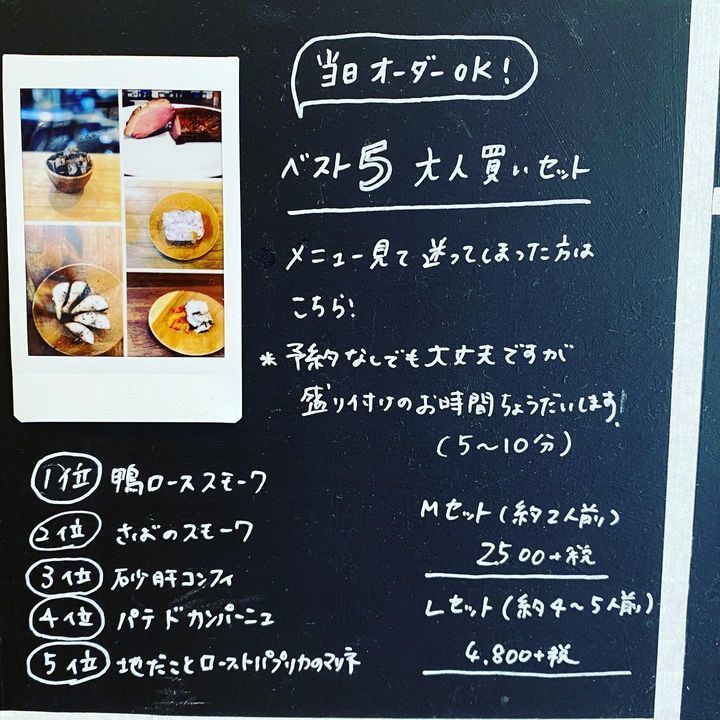 当日オーダーOK!
ベスト5 大人買いセット
メニュー見て送ってしまった方は
こちら!
*予約なしでも大丈夫ですが
盛り付けのお時間ちょうだいします!
(5〜10分)
1位 鴨ローススモーク
2位 さばのスモーク
3位 砂肝コンフィ
4位 パテドカンパーニュ
5位 地だことローストパプリカのマリネ
Mセット(約2人前)
2500+税
Lセット(約4〜5人前)
4.800+税